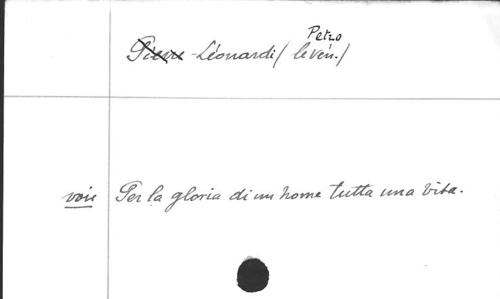 Petro
Pierre - Léonardi / le vén. /
voir Per la gloria di un nome tutta una vita.